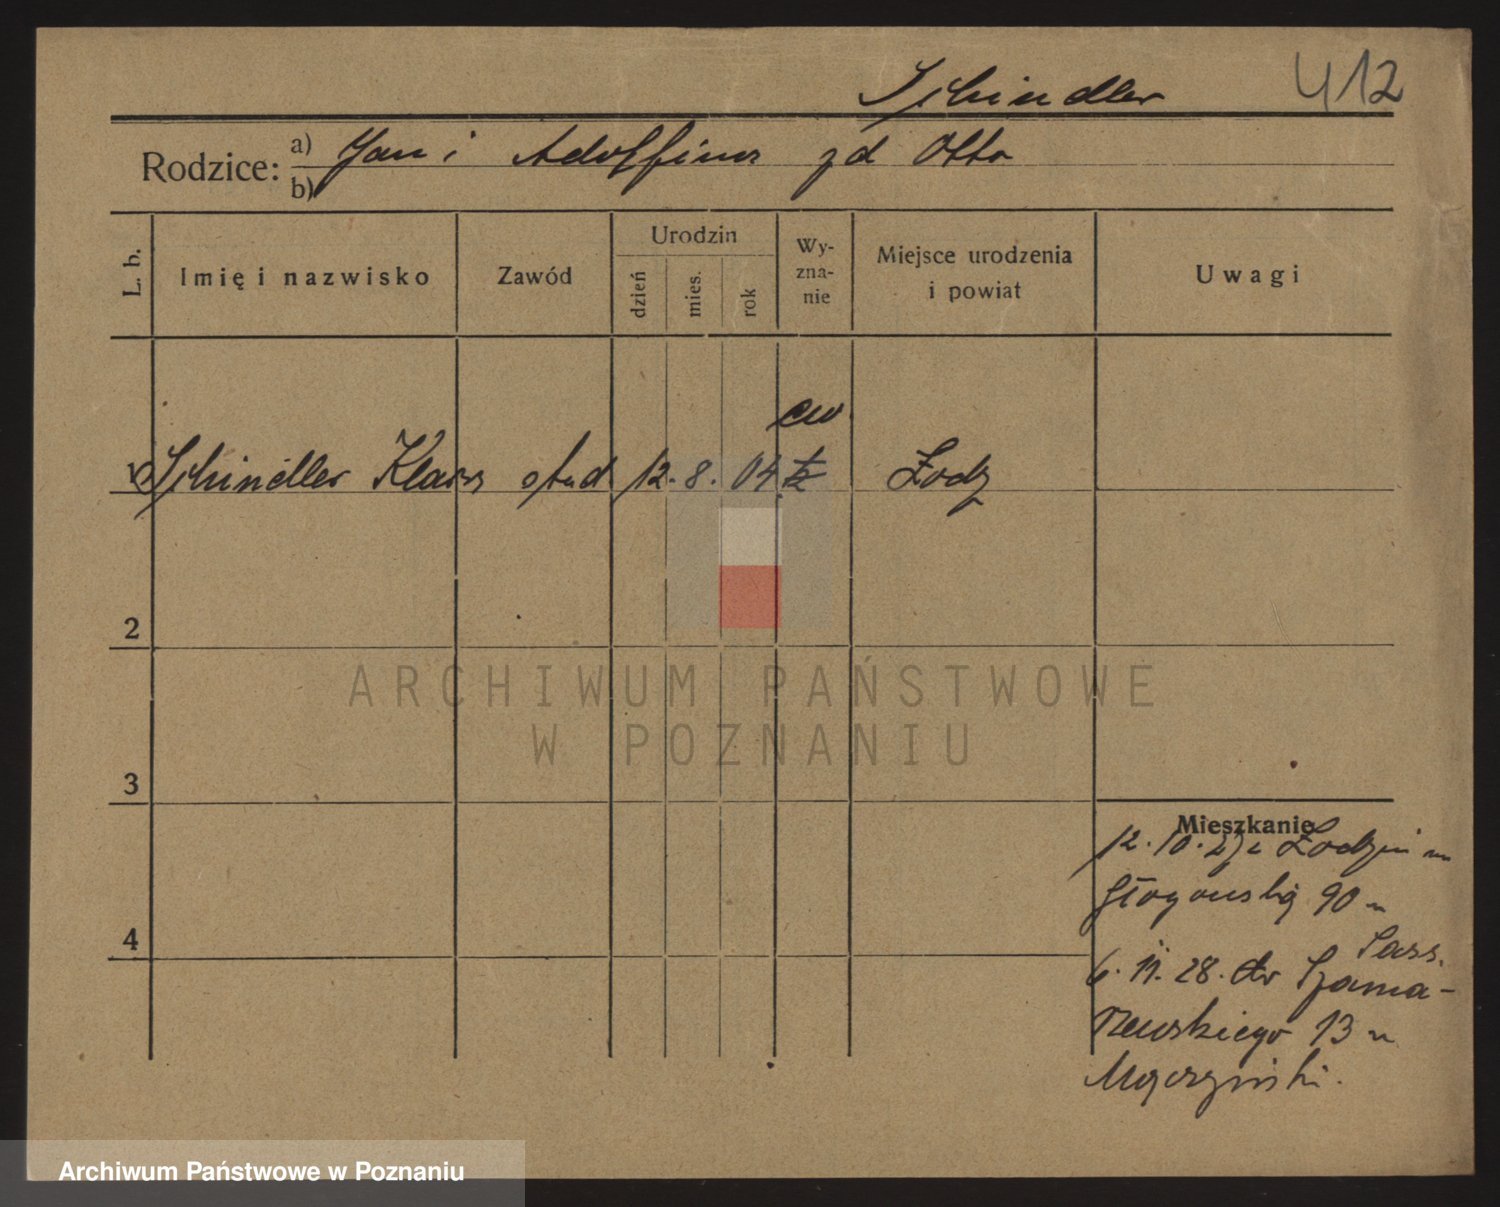 Schindler 412
Rodzice: a) Jan i Adolfina zd Otto
b)
L. b. Imię i nazwisko Zawód Urodzin dzień mies. rok Wy-zna-nie Miejsce urodzenia i powiat Uwagi
ew
Schindler Klara stud 12. 8. 04 Łodz
2
3
4
Mieszkanie
12. 10. z Łodzi
Głogowską 90
Sass.
6. 11. 28. do Szama-
rzewskiego 13 u
ARCHIWUM PAŃSTWOWE
W POZNANIU
Archiwum Państwowe w Poznaniu